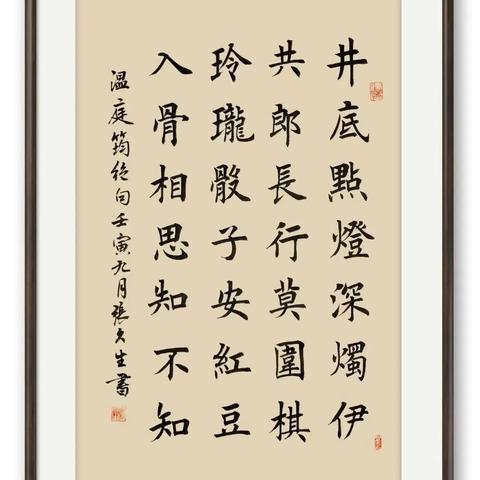 井底點燈深燭伊
共郎長行莫圍棋
玲瓏骰子安紅豆
入骨相思知不知
溫庭筠絕句壬寅九月張久生書